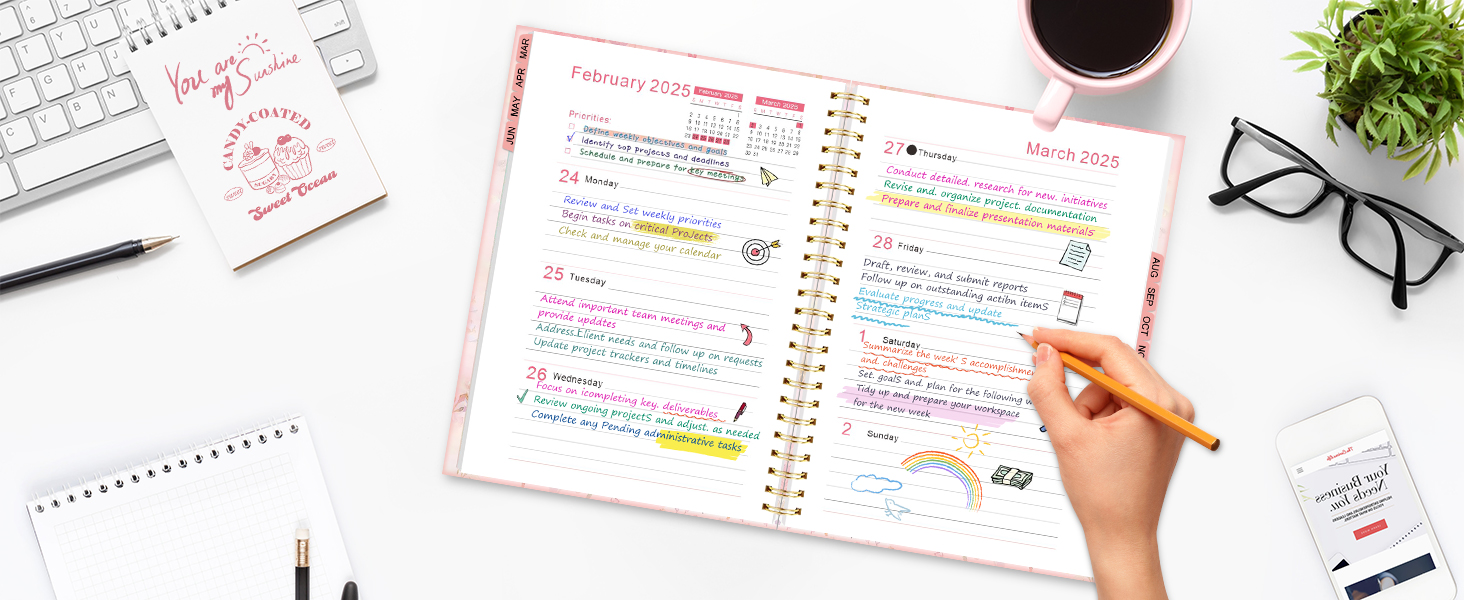 You are
my Sunshine
CANDY-COATED
SWEET
SUGARY
SWEET
Sweet Ocean
MAR
APR
MAY
JUN
February 2025
February 2025
S M T W T F S
March 2025
S M T W T F S
Priorities:
Define weekly objectives and goals
identify top projects and deadlines
Schedule and prepare for key meetings
24 Monday
Review and Set weekly priorities
Begin tasks on critical ProJects
Check and manage your calendar
25 Tuesday
Attend important team meetings and
provide upddtes
Address.Elient needs and follow up on requests
Update project trackers and timelines
26 Wednesday
Focus on icompleting key. deliverables
Review ongoing projectS and adjust. as needed
Complete any Pending administrative tasks
March 2025
27 Thursday
Conduct detailed. research for new. initiatives
Revise and. organize project. documentation
Prepare and finalize presentation materialS
28 Friday
Draft, review, and submit reports
Follow up on outstanding actibn itemS
Evaluate progress and update
Strategic planS
1 Saturday
Summarize the week' S accomplishmen
and. challenges
Set. goalS and. plan for the following w
Tidy up and prepare your workspace
for the new week
2 Sunday
AUG
SEP
OCT
Your Business
Needs You.